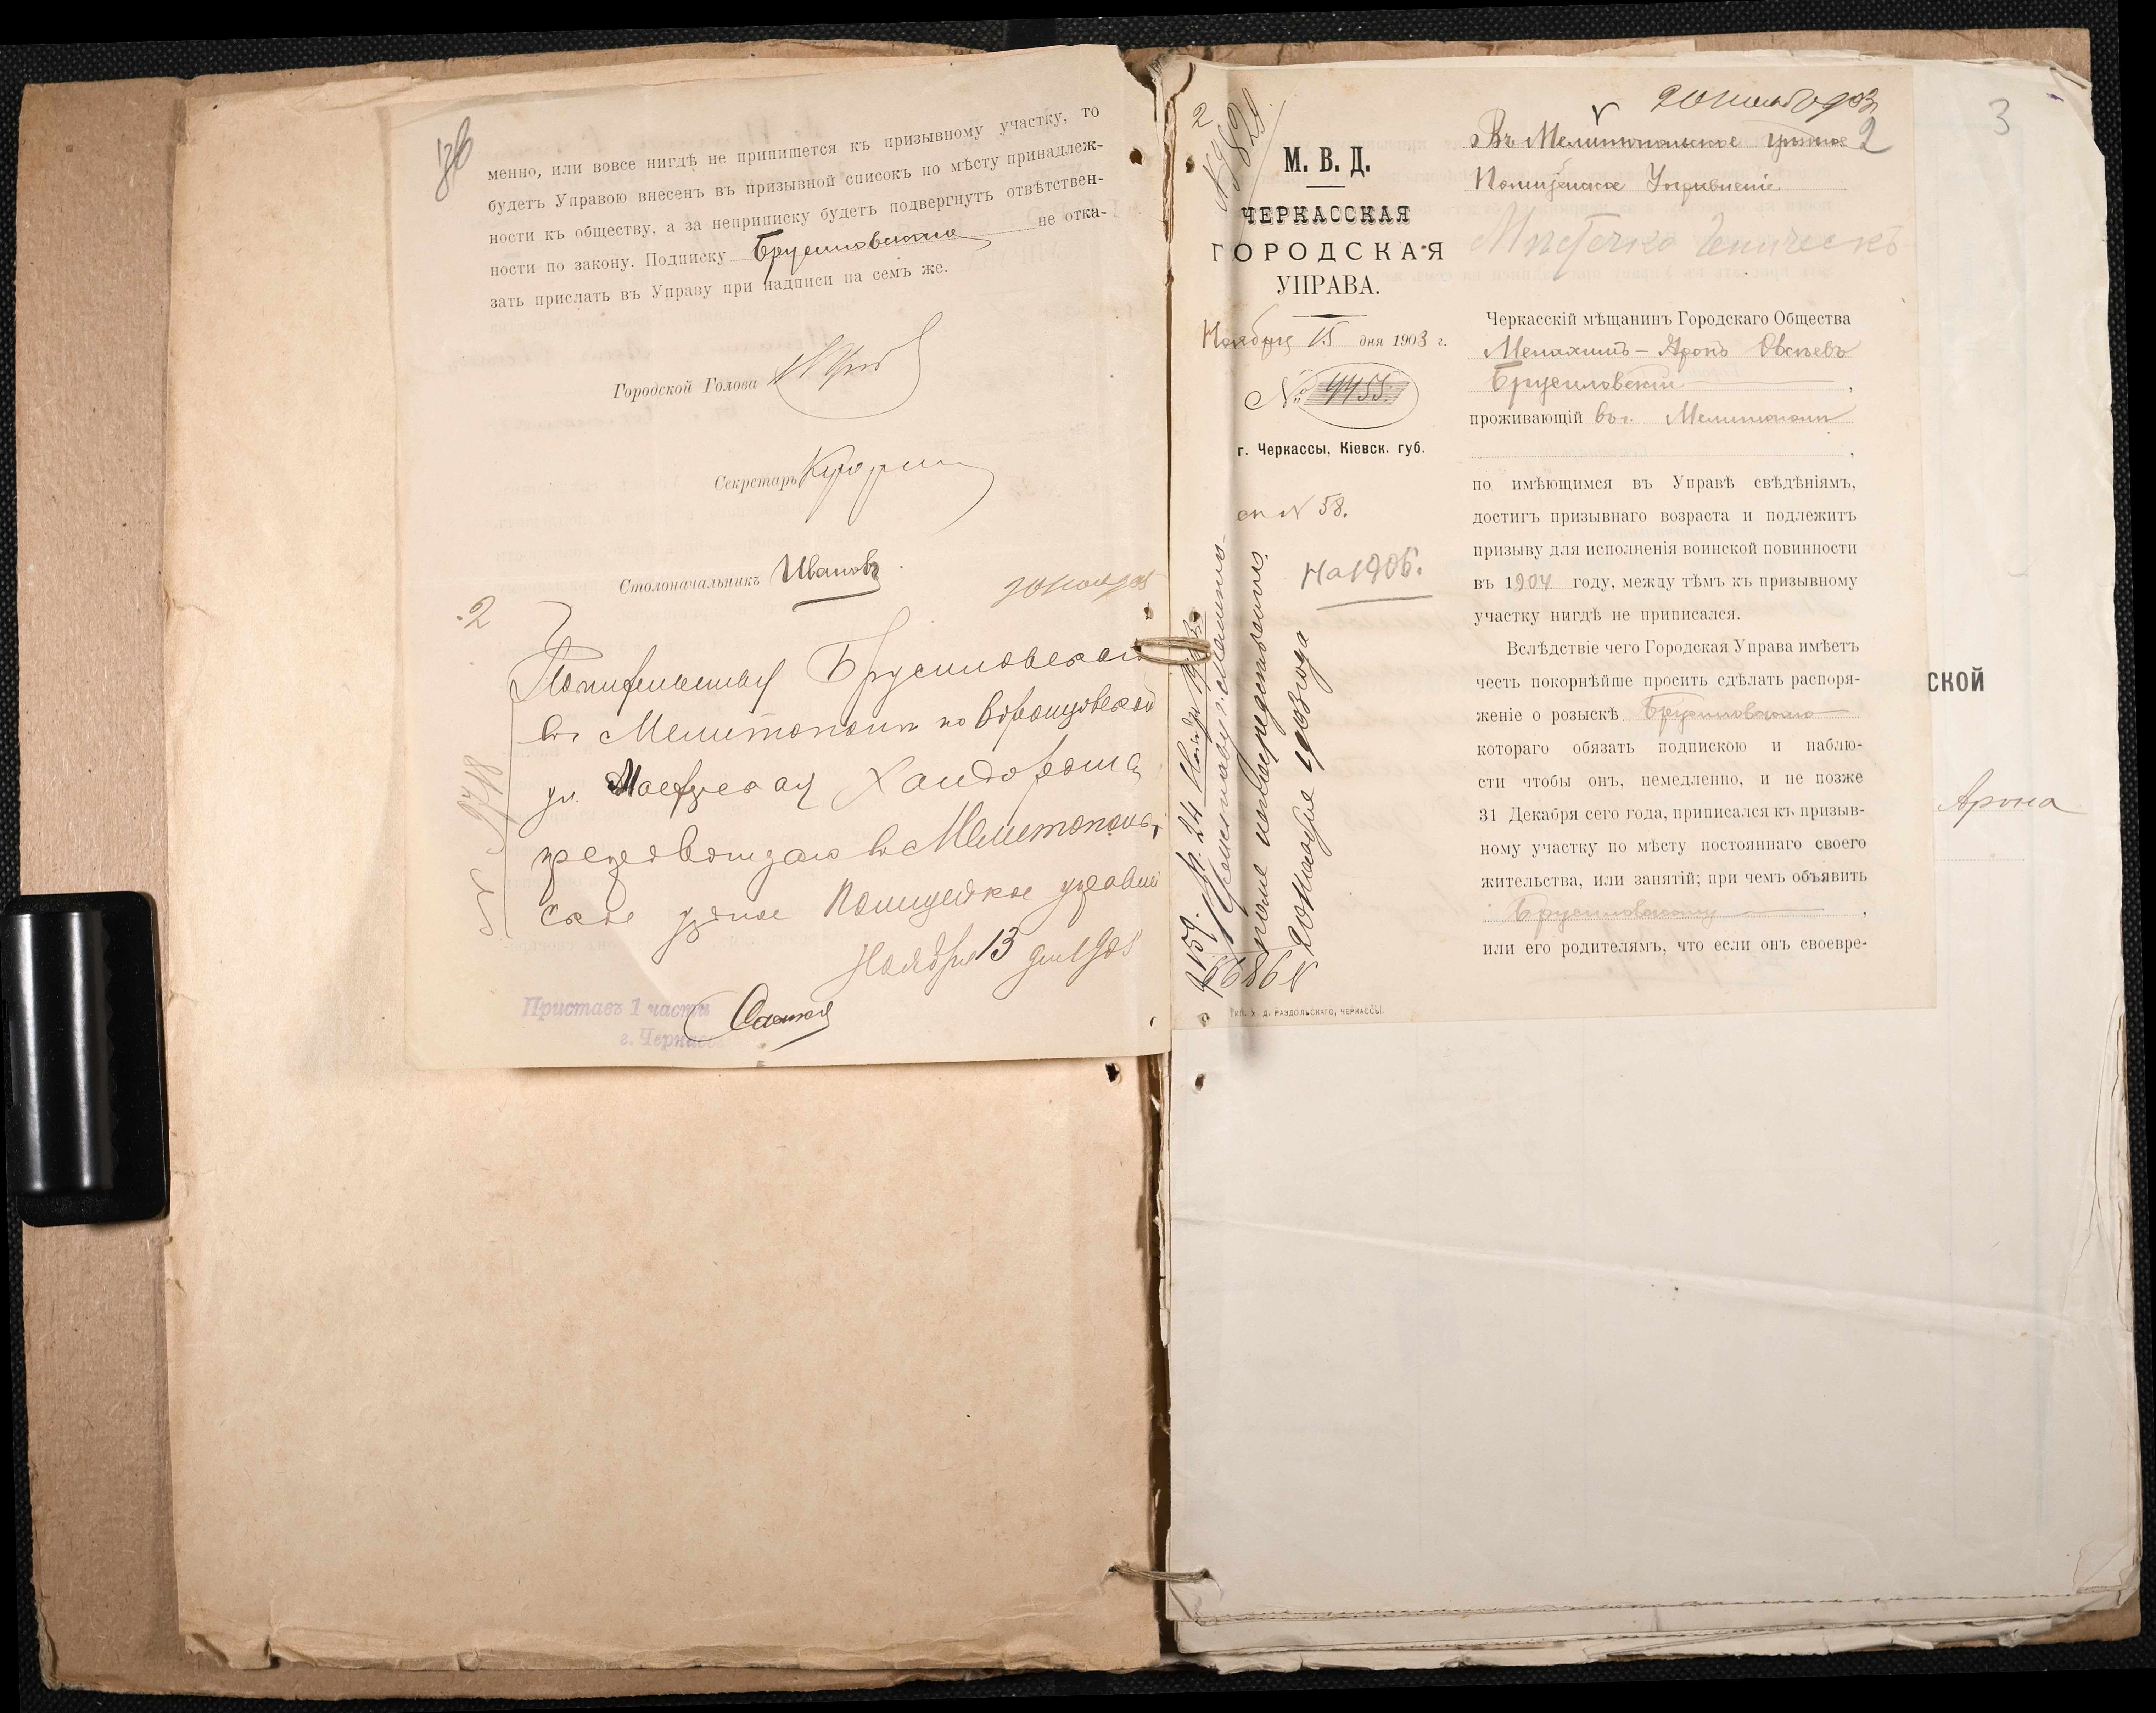 менно, или вовсе нигдѣ не припишется къ призывному участку, то
будетъ Управою внесенъ въ призывной списокъ по мѣсту принадлеж-
ности къ обществу, а за неприписку будетъ подвергнутъ отвѣтствен-
ности по закону. Подписку Брусиловскаго не отка-
зать прислать въ Управу при надписи на семъ же.
Городской Голова
Секретарь
Столоначальникъ Ивановъ
2
Брусиловскаго
въ Мелитополѣ по Воронцовской
ул.
препровождаю въ Мелитополь-
ское уѣздное Полицейское управленіе
Ноября 13 дня 1903
Приставъ 1 части
г. Черкассъ
2
М. В. Д.
ЧЕРКАССКАЯ
ГОРОДСКАЯ
УПРАВА.
Ноября 15 дня 1903 г.
№ 4455.
г. Черкассы, Кіевск. губ.
сп N 58.
На 1906.
20 Ноября 1903 года
Тип. Х. Д. РАЗДОЛЬСКАГО, ЧЕРКАССЫ.
2
Въ Мелитопольское уѣздное
Полицейское Управленіе
Мѣстечко Геническъ
Черкасскій мѣщанинъ Городскаго Общества
Менахимъ-Аронъ Овсѣевъ
Брусиловскій,
проживающій въ г. Мелитополѣ
,
по имѣющимся въ Управѣ свѣдѣніямъ,
достигъ призывнаго возраста и подлежитъ
призыву для исполненія воинской повинности
въ 1904 году, между тѣмъ къ призывному
участку нигдѣ не приписался.
Вслѣдствіе чего Городская Управа имѣетъ
честь покорнѣйше просить сдѣлать распоря-
женіе о розыскѣ Брусиловскаго
котораго обязать подпискою и наблю-
сти чтобы онъ, немедленно, и не позже
31 Декабря сего года, приписался къ призыв-
ному участку по мѣсту постояннаго своего
жительства, или занятій; при чемъ объявить
Брусиловскому,
или его родителямъ, что если онъ своевре-
3
СКОЙ
Арона